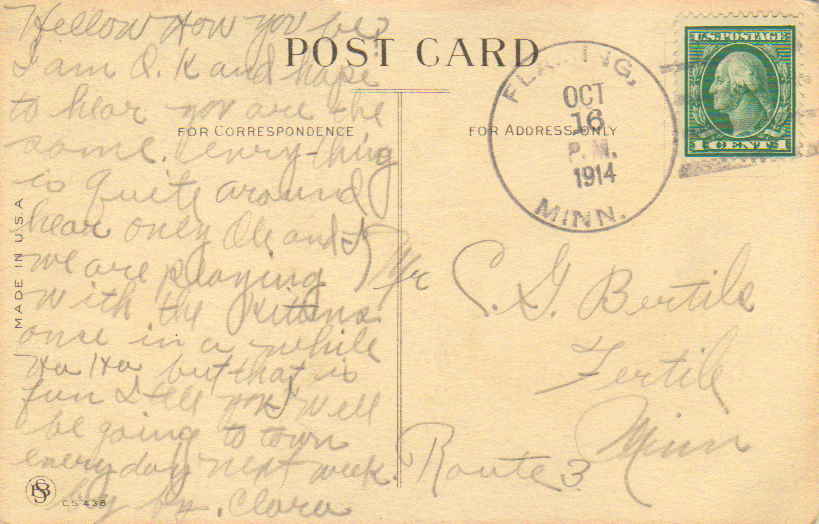 POST CARD
FOR CORRESPONDENCE
FOR ADDRESS ONLY
MADE IN U S A
Hellow How you be?
I am O. K and hope
to hear you are the
same. Everything
is quite around
hear only Ole and I
we are playing
with the kittens
once in a while
Ha Ha but that is
fun I tell you Well
be going to town
everyday next week
by by. Clara
FLAMING,
OCT
16
P. M.
1914
MINN.
U.S. POSTAGE
1 CENT 1
Mr C. G. Bertils
Fertile
Minn
Route 3
SB
C.S 438